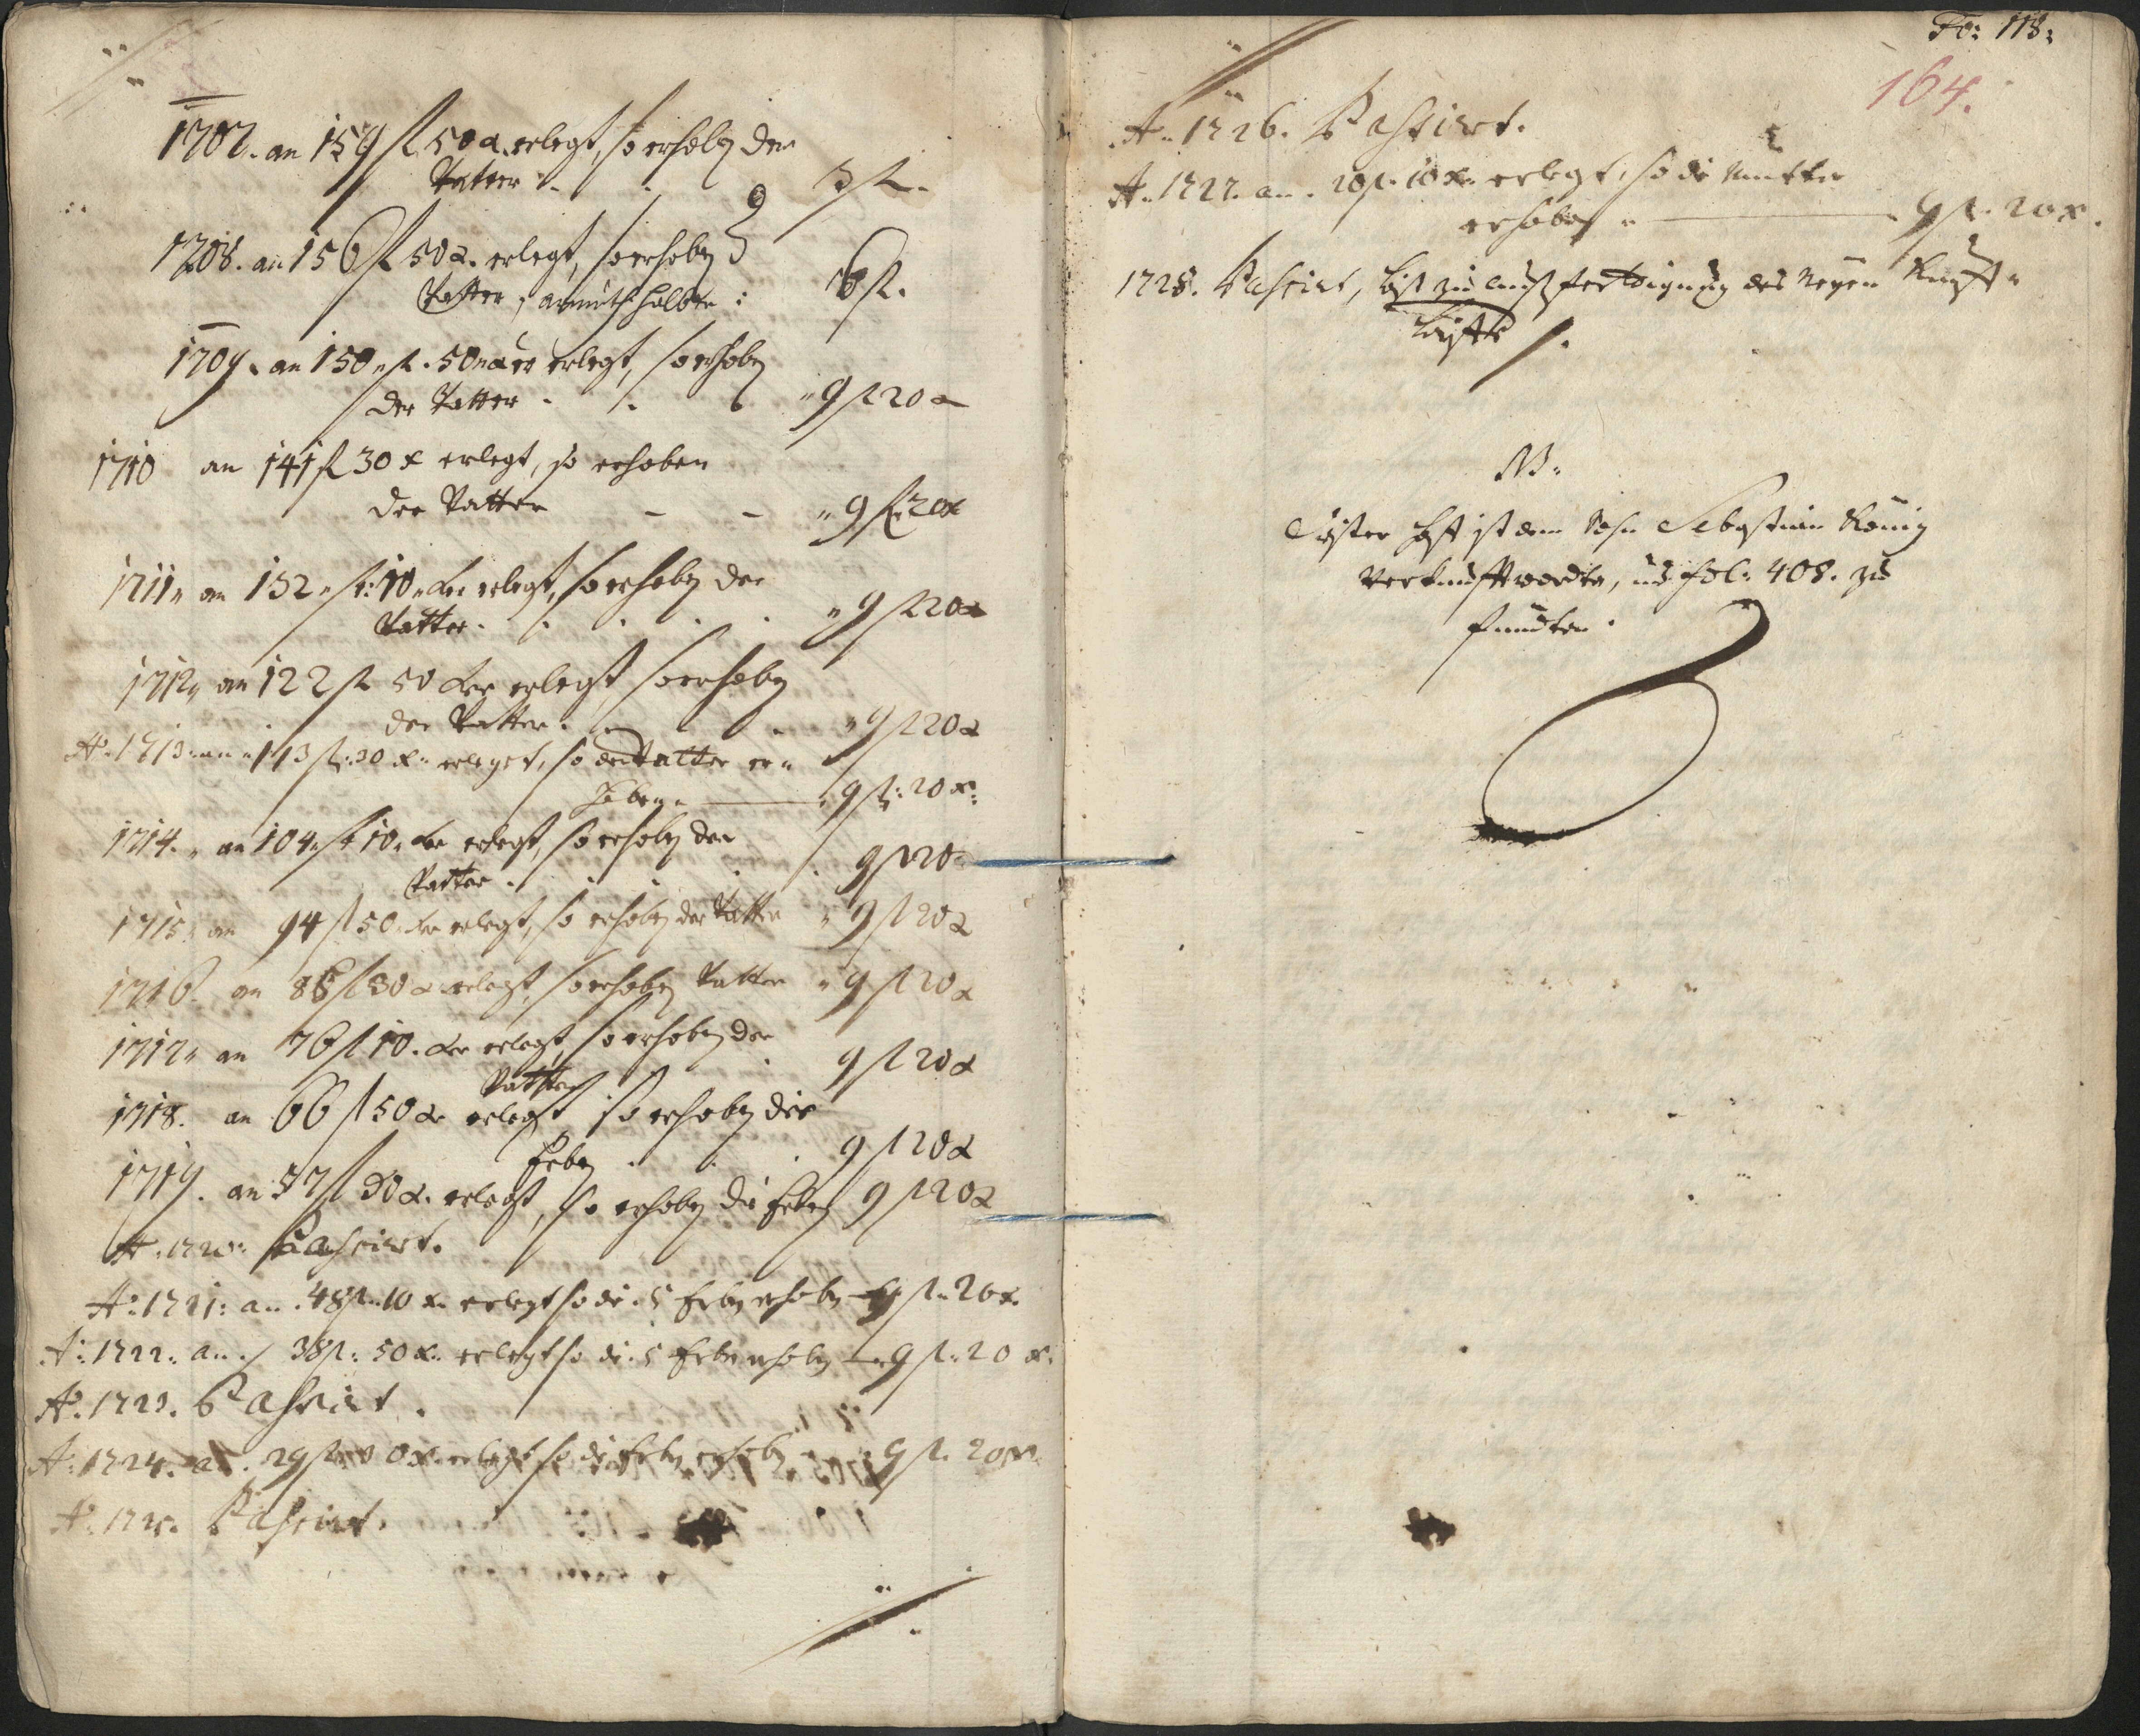 1707. an 159 fl 50 x. erlegt, so erhoben der
Vatter . . 3 fl.
1708. an 156 fl 50 x. erlegt, so erhoben
Vatter, armuth halber : 6 fl.
1709. an 150 fl. 50 xer erlegt, so erhoben
der Vatter . . " 9 fl 20 x
1710 an 141 fl 30 x erlegt, so erhoben
der Vatter - - " 9 fl 20 x
1711 " an 132 " fl: 10 " xer erlegt, so erhoben der
Vatter . . . . . " 9 fl 20 x
1712 " an 122 fl 50 xer erlegt, so erhoben
der Vatter . . . " 9 fl 20 x
Aō 1713 " an " 113 fl: 30 x " erleget, so der Vatter er "
hoben " 9 fl: 20 x:
1714. " an 104 " fl 10 " xer erlegt, so erhoben der
Vatter . . . . . 9 fl 20
1715 " an 94 fl 50 xer erlegt, so erhoben der Vatter " 9 fl 20 x
1716. an 85 fl 30 x erlegt, so erhoben Vatter " 9 fl 20 x
1717 " an 76 fl 10. xer erlegt, so erhoben der
Vatter . 9 fl 20 x
1718. an 66 fl 50 xr erlegt so erhoben die
Erben . . . 9 fl 20 x
1719. an 57 fl 30 x. erlegt, so erhoben die Erben 9 fl 20 x
Aō 1720: Passirt.
Aō: 1721: an . 48 fl. 10 x. erlegt so die . 5 Erben erhoben 9 fl. 20 x.
Aō: 1722: an . 38 fl: 50 x. erlegt so die . 5 Erben erhoben 9 fl: 20 x.
Aō: 1723. Passirt .
Aō: 1724. an . 29 fl 30 x. erlegt so die Erben erhoben 9 fl. 20 x.
Aō: 1725. Passirt.
Fo: 118:
164.
Aō 1726. Passirt.
Aō 1727. an . 20 fl. 10 x. erlegt, so die Mutter
erhoben " 9 fl. 20 x.
1728. Passirt, biß zu außfertigung des Neyen Kauff "
NB:
Dißer ist dem Sohn Sebastian König
Verkaufft worden, und fol: 408. zu
funden .